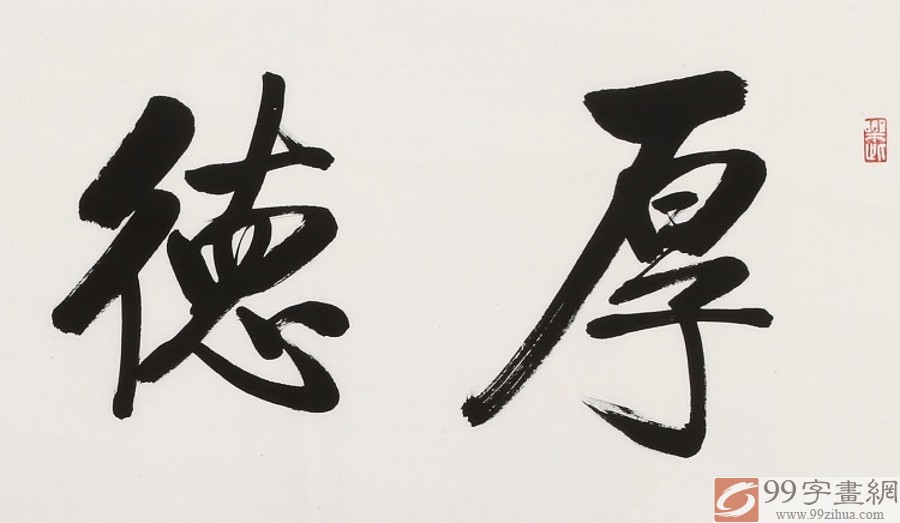 厚德
99字畫網
www.99zihua.com